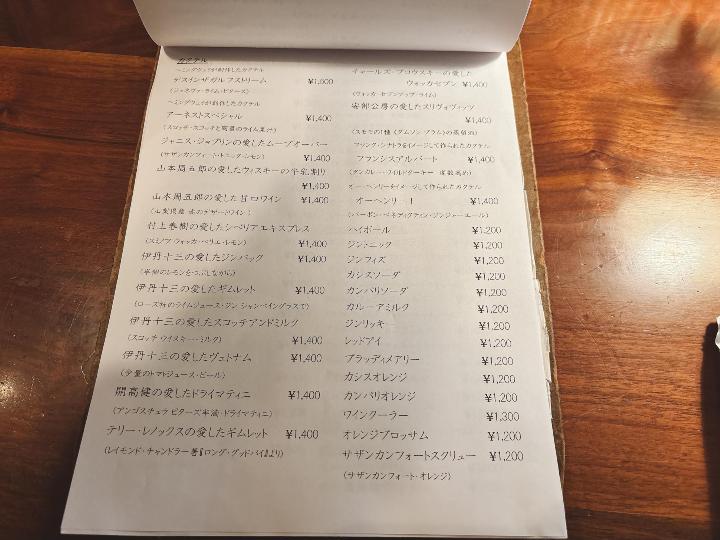 カクテル
ヘミングウェイが創作したカクテル
デスインザガルフストリーム ¥1,600
(ジェネヴァ・ライム・ビターズ)
ヘミングウェイが創作したカクテル
アーネストスペシャル ¥1,400
(スコッチ・スコッチと同量のライム果汁)
ジャニス・ジョプリンの愛したムーブオーバー
(サザンカンフォート・トニック・レモン) ¥1,400
山本周五郎の愛したウィスキーの牛乳割り
¥1,400
山本周五郎の愛した甘口ワイン ¥1,400
(山梨県産 赤のデザートワイン)
村上春樹の愛したシベリアエキスプレス
(スミノフウォッカ・ペリエ・レモン) ¥1,400
伊丹十三の愛したジンバック ¥1,400
(半個のレモンをつぶしながら)
伊丹十三の愛したギムレット ¥1,400
(ローズ社のライムジュース・ジン シャンペイングラスで)
伊丹十三の愛したスコッチアンドミルク
(スコッチウイスキー・ミルク) ¥1,400
伊丹十三の愛したヴェトナム ¥1,400
(少量のトマトジュース・ビール)
開高健の愛したドライマティニ
¥1,400
(アンゴスチュラ ビターズ半滴・ドライマティニ)
テリー・レノックスの愛したギムレット ¥1,400
(レイモンド・チャンドラー著『ロング・グッドバイ』より)
チャールズ・ブコウスキーの愛した
ウォッカセブン ¥1,400
(ウォッカ・セブンアップ・ライム)
安部公房の愛したスリヴォヴィッツ
¥1,400
(スモモの1種(ダムソン・プラム)の蒸留酒)
フランク・シナトラをイメージして作られたカクテル
フランシスアルバート ¥1,400
(タンカレー・ワイルドターキー 度数高め)
オー・ヘンリーをイメージして作られたカクテル
オーヘンリー! ¥1,400
(バーボン・ベネディクティン・ジンジャーエール)
ハイボール ¥1,200
ジントニック ¥1,200
ジンフィズ ¥1,200
カシスソーダ ¥1,200
カンパリソーダ ¥1,200
カルーアミルク ¥1,200
ジンリッキー ¥1,200
レッドアイ ¥1,200
ブラッディメアリー ¥1,200
カシスオレンジ ¥1,200
カンパリオレンジ ¥1,200
ワインクーラー ¥1,300
オレンジブロッサム ¥1,200
サザンカンフォートスクリュー ¥1,200
(サザンカンフォート・オレンジ)